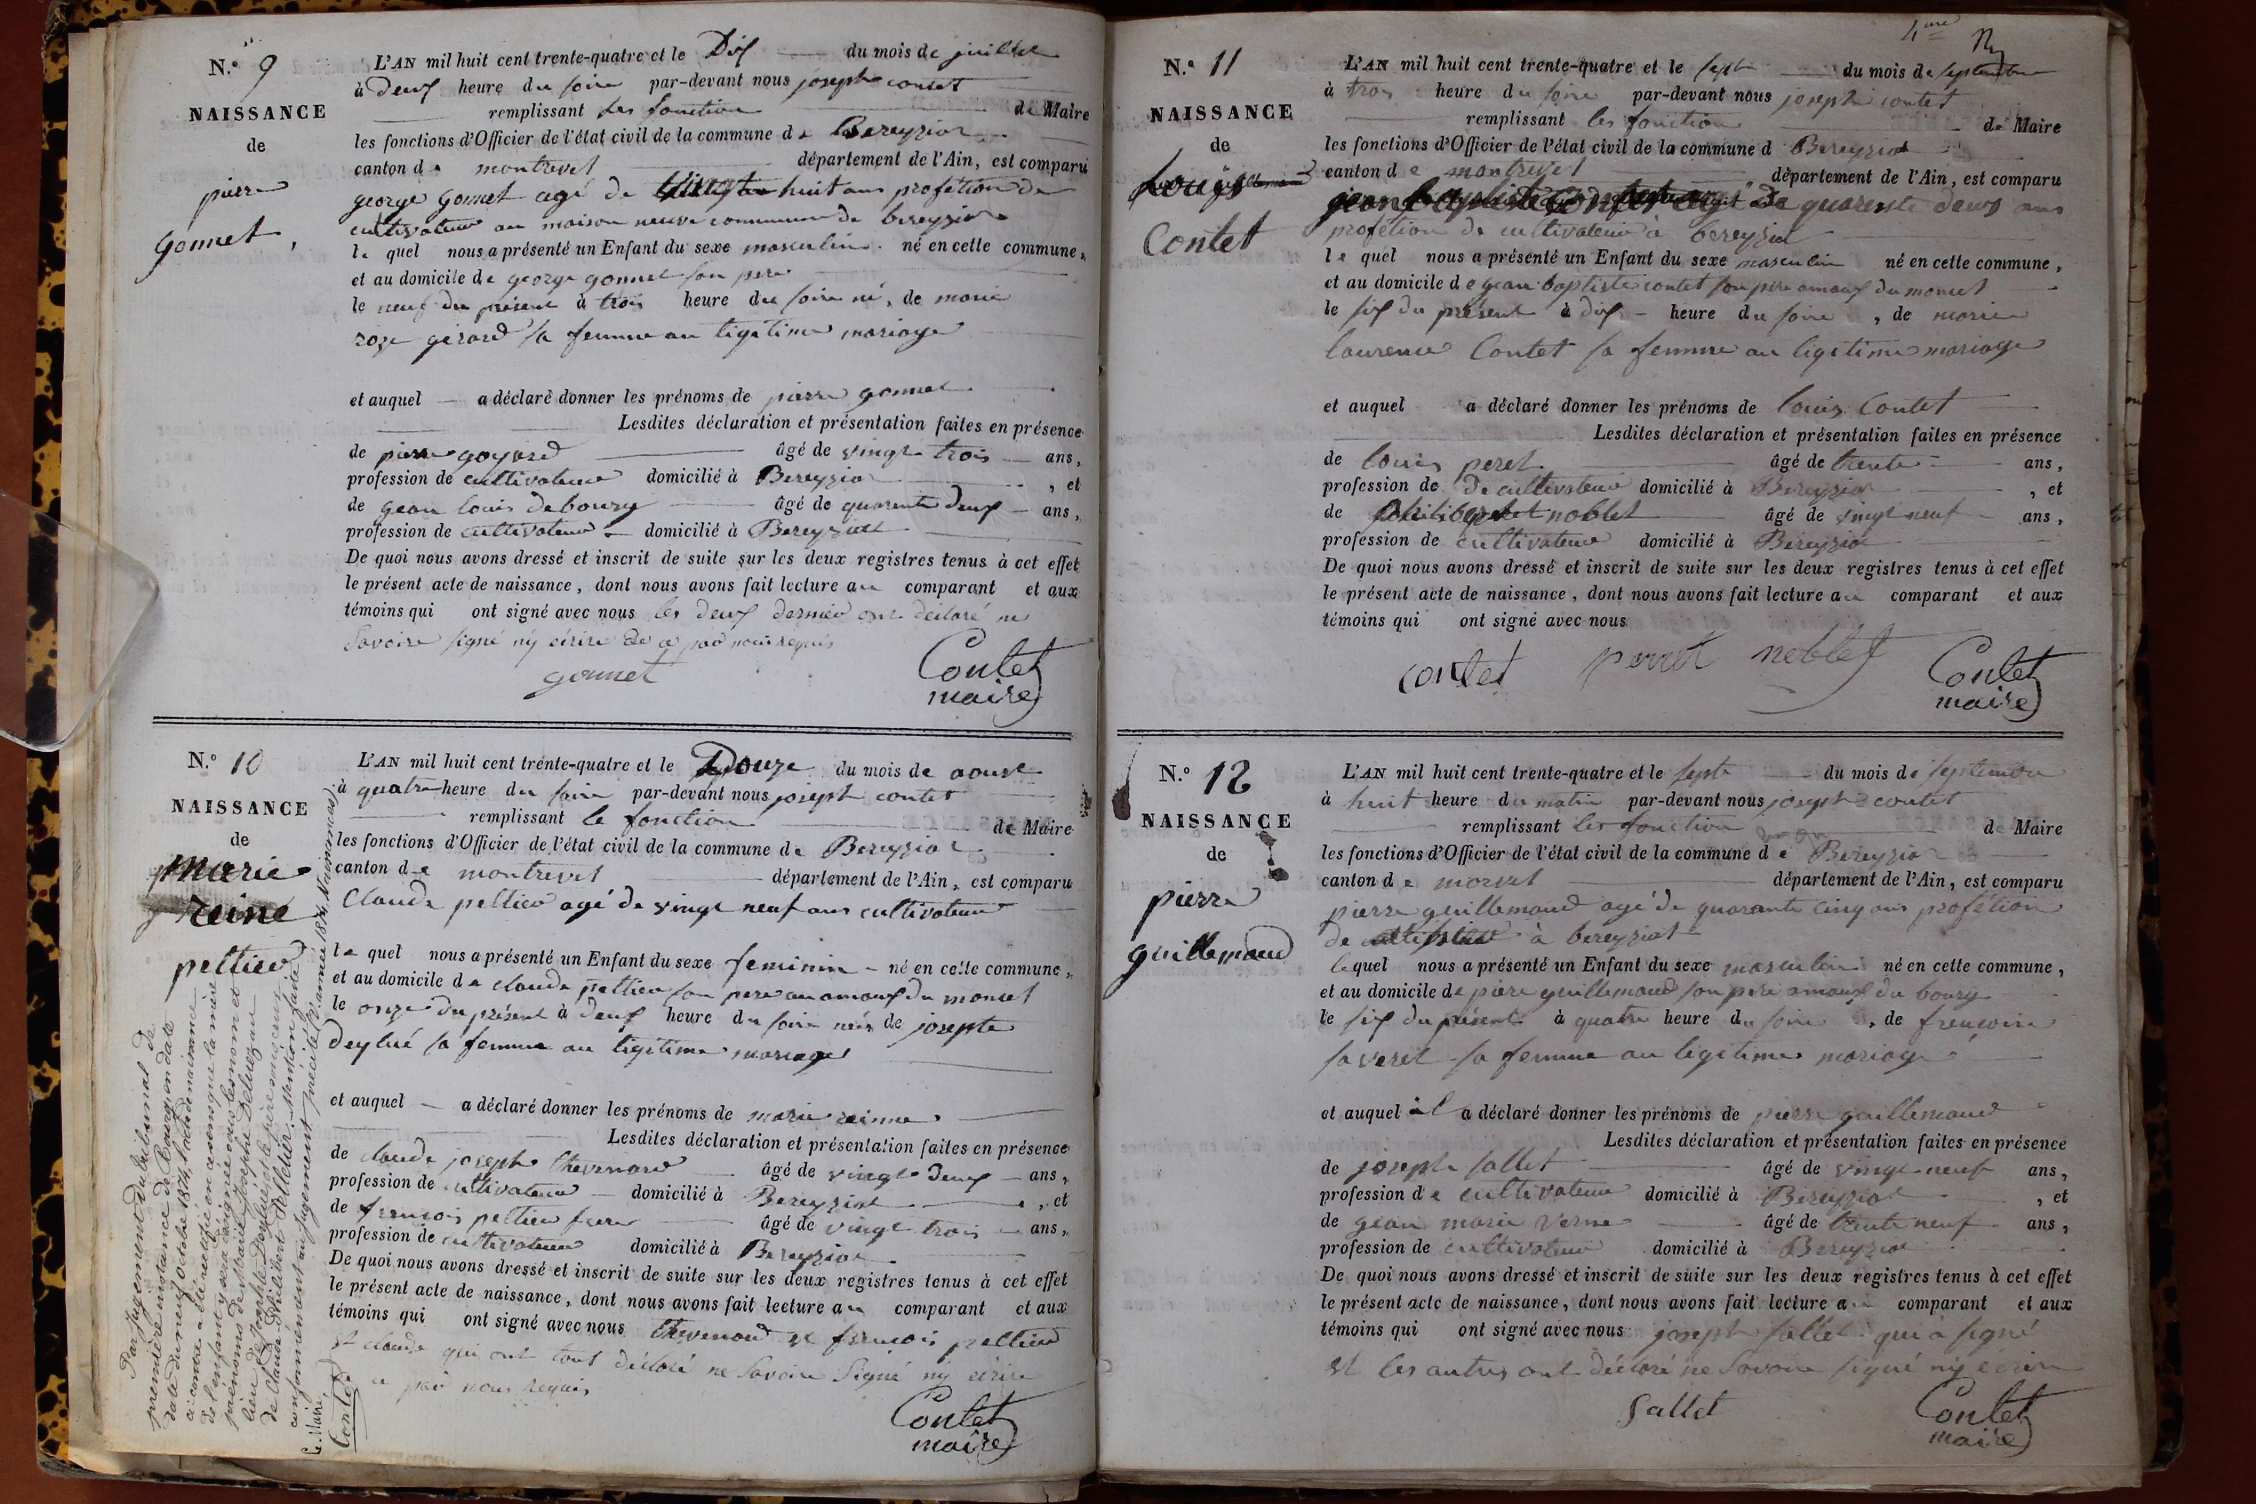 N.º 9
NAISSANCE
de
pierre
gonnet
L'AN mil huit cent trente-quatre et le Dix du mois de juillet
à Deux heure du soire par-devant nous joseph contet
remplissant les fonction de Maire
les fonctions d'Officier de l'état civil de la commune de Bereyziat
canton de montrevel département de l'Ain, est comparu
george gonnet agé de huit ans profetion de
cultivateur au maison neuve commune de bereyziat
le quel nous a présenté un Enfant du sexe masculin né en cette commune,
et au domicile de george gonnet son pere
le neuf du présent à trois heure du soire né, de marie
roze gerard sa femme an ligitime mariage
et auquel a déclaré donner les prénoms de pierre gonnet
Lesdites déclaration et présentation faites en présence
de pierre goyard âgé de vingt trois ans,
profession de cultivateur domicilié à Bereyziat, et
de gean louis debourg âgé de quarente deux ans,
profession de cultivateur domicilié à Bereyziat
De quoi nous avons dressé et inscrit de suite sur les deux registres tenus à cet effet
le présent acte de naissance, dont nous avons fait lecture au comparant et aux
témoins qui ont signé avec nous les deux dernier ont declaré ne
savoire signé ny ecrire de ce par nous requis
gonnet
Contet
maire
N.º 10
NAISSANCE
de
marie
reine
peltier
L'AN mil huit cent trente-quatre et le Douze du mois de aoust
à quatre heure du soire par-devant nous joseph contet
remplissant le fonction de Maire
les fonctions d'Officier de l'état civil de la commune de Bereyziat
canton de montrevel département de l'Ain, est comparu
Claude peltier agé de vingt neuf ans cultivateur
le quel nous a présenté un Enfant du sexe feminin né en cette commune,
et au domicile de claude peltier son pere au amaux du moncet
le onze du présent à deux heure du soire née de josepte
deylué sa femme au ligitime mariage
et auquel a déclaré donner les prénoms de marie reinne
Lesdites déclaration et présentation faites en présence
de claude joseph thevenard âgé de vingt deux ans,
profession de cultivateur domicilié à Bereyziat, et
de francois peltier frere âgé de vingt trois ans,
profession de cultivateur domicilié à Bereyziat
De quoi nous avons dressé et inscrit de suite sur les deux registres tenus à cet effet
le présent acte de naissance, dont nous avons fait lecture au comparant et aux
témoins qui ont signé avec nous thevenard et francois peltier
et claude qui ont tout déclaré ne savoire signé ny ecrire
ce par nous requis
Contet
maire
Par jugement du tribunal de
première instance de Bourg en date
date du neuf octobre 1874, l'acte de naissance
ci contre a été rectifié en ce sens que la mère
de l'enfant y sera désignée sous les nom et
prénoms de Marie Josephe Deluezque au
lieu de Josephte Deylué et le père sous ceux
de Claude Philibert Pelletier. Mention faite
conformément au jugement précité (année 1874, Naissances).
Le Maire
Contet
4me
N.º 11
NAISSANCE
de
Louis
Contet
L'AN mil huit cent trente-quatre et le sept du mois de septembre
à trois heure du soire par-devant nous joseph contet
remplissant les fonction de Maire
les fonctions d'Officier de l'état civil de la commune d Bereyziat
canton de montrevel département de l'Ain, est comparu
jean baptiste contet agé de quarente deux ans
profetion de cultivateur à bereyziat
le quel nous a présenté un Enfant du sexe masculin né en cette commune,
et au domicile de gean baptiste contet son pere amaux du moncet
le six du présent à dix heure du soire, de marie
laurence Contet sa femme au ligitime mariage
et auquel a déclaré donner les prénoms de louis Contet
Lesdites déclaration et présentation faites en présence
de louis peret âgé de trente ans,
profession de De cultivateur domicilié à Bereyziat, et
de philibert noblet âgé de vingt neuf ans,
profession de cultivateur domicilié à Bereyziat
De quoi nous avons dressé et inscrit de suite sur les deux registres tenus à cet effet
le présent acte de naissance, dont nous avons fait lecture au comparant et aux
témoins qui ont signé avec nous
contet perret noblet
Contet
maire
N.º 12
NAISSANCE
de
pierre
guillemaud
L'AN mil huit cent trente-quatre et le sept du mois de septembre
à huit heure du matin par-devant nous joseph contet
remplissant les fonction de Maire
les fonctions d'Officier de l'état civil de la commune de Bereyziat
canton de morvel département de l'Ain, est comparu
pierre guillemaud agé de quarante cinq ans profetion
de cultivateur à bereyziat
lequel nous a présenté un Enfant du sexe masculin né en cette commune,
et au domicile de piere guillemaud son pere amaux du bourg
le six du présent à quatre heure du soire, de francoise
saveret sa femme au legitime mariage
et auquel il a déclaré donner les prénoms de pierre guillemaud
Lesdites déclaration et présentation faites en présence
de joseph sallet âgé de vingt neuf ans,
profession de cultivateur domicilié à Bereyziat, et
de gean marie verne âgé de trente neuf ans,
profession de cultivateur domicilié à Bereyziat
De quoi nous avons dressé et inscrit de suite sur les deux registres tenus à cet effet
le présent acte de naissance, dont nous avons fait lecture au comparant et aux
témoins qui ont signé avec nous joseph sallet qui a signé
et les autres ont déclaré ne savoire signé ny ecrire
Sallet
Contet
maire